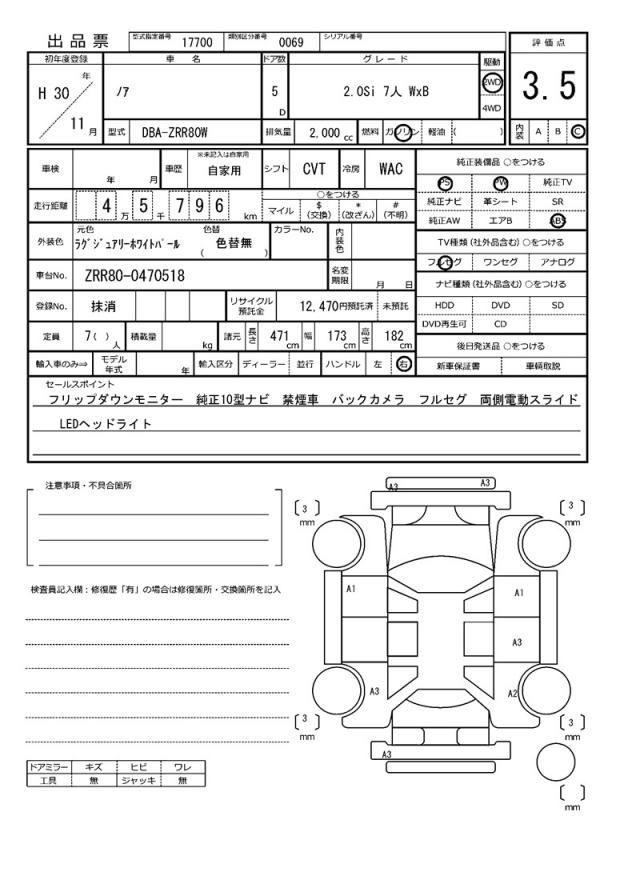 出品票
型式指定番号 17700 類別区分番号 0069 シリアル番号
評価点
3.5
内装 A B C
初年度登録 車名 ドア数 グレード 駆動
H 30 年 11 月
ノア
5 D
2.0Si 7人 WxB
2WD
4WD
型式 DBA-ZRR80W 排気量 2,000 cc 燃料 ガソリン 軽油 ( )
車検 年 月 車歴 ※未記入は自家用 自家用 シフト CVT 冷房 WAC
純正装備品 ○をつける
PS PW 純正TV
純正ナビ 革シート SR
純正AW エアB ABS
走行距離 4 万 5 千 7 9 6 km
○をつける
マイル $ (交換) * (改ざん) # (不明)
TV種類(社外品含む)○をつける
フルセグ ワンセグ アナログ
外装色 元色 ラグジュアリーホワイトパール 色替 ( 色替無 ) カラーNo. 内装色
ナビ種類(社外品含む)○をつける
HDD DVD SD
DVD再生可 CD
車台No. ZRR80-0470518 名変期限 月 日
登録No. 抹消 リサイクル預託金 12,470円預託済 未預託
定員 7( ) 人 積載量 kg 諸元 長さ 471 cm 幅 173 cm 高さ 182 cm
後日発送品 ○をつける
新車保証書 車輌取説
輸入車のみ⇒ モデル年式 年 輸入区分 ディーラー 並行 ハンドル 左 右
セールスポイント
フリップダウンモニター 純正10型ナビ 禁煙車 バックカメラ フルセグ 両側電動スライド
LEDヘッドライト
注意事項・不具合箇所
検査員記入欄：修復歴「有」の場合は修復箇所・交換箇所を記入
ドアミラー キズ ヒビ ワレ
工具 無 ジャッキ 無
A3 A3
[ 3 ] mm
[ 3 ] mm
A1
A1
A3
A3
A2
[ 3 ] mm
[ 3 ] mm
A3
[ ] mm